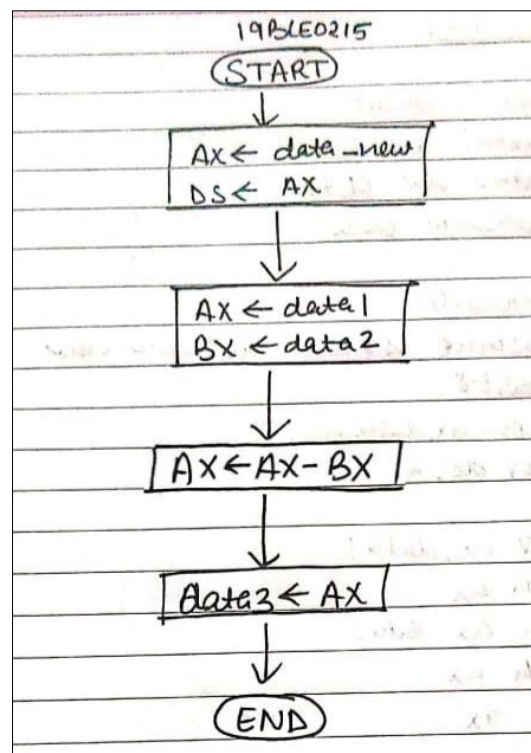 19BLE0215
START
AX ← data_new
DS ← AX
AX ← data1
BX ← data2
AX ← AX - BX
data3 ← AX
END